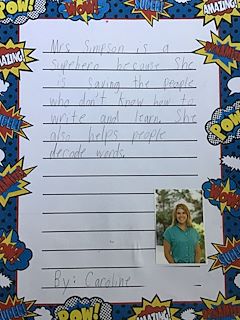 Mrs Simpson is a
superhero because She
is saving the people
who don't know how to
write and learn. She
also helps people
decode words.
By: Caroline
POW!
WOW!
SUPER!
AMAZING!
AMAZING!
POW!
SUPER!
POW!
AMAZING!